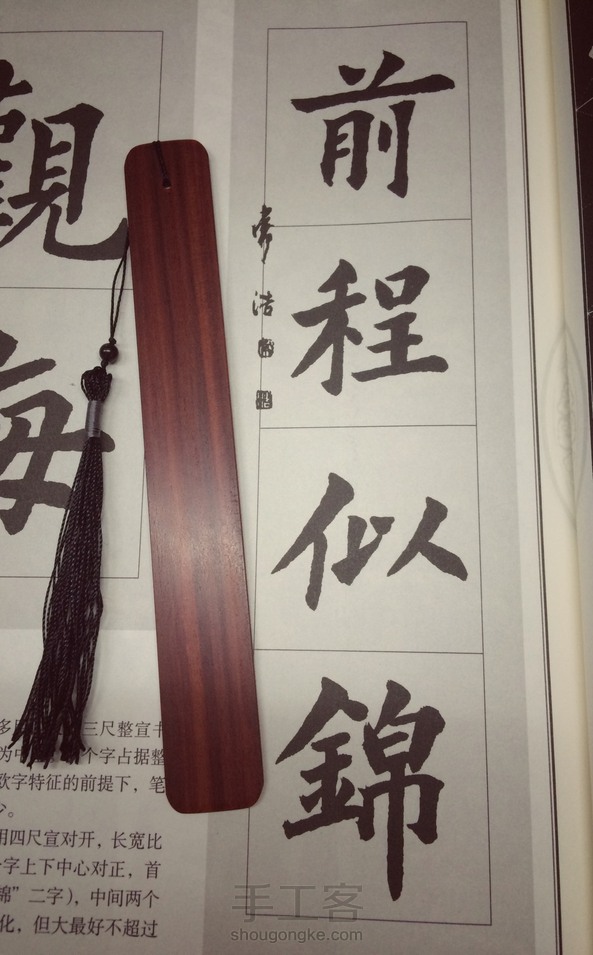 前
程
似
錦
常浩
觀
海
三尺整宣
个字占据整
欧字特征的前提下，笔
少。
用四尺宣对开，长宽比
字上下中心对正，首
锦”二字），中间两个
化，但大最好不超过
手工客
shougongke.com